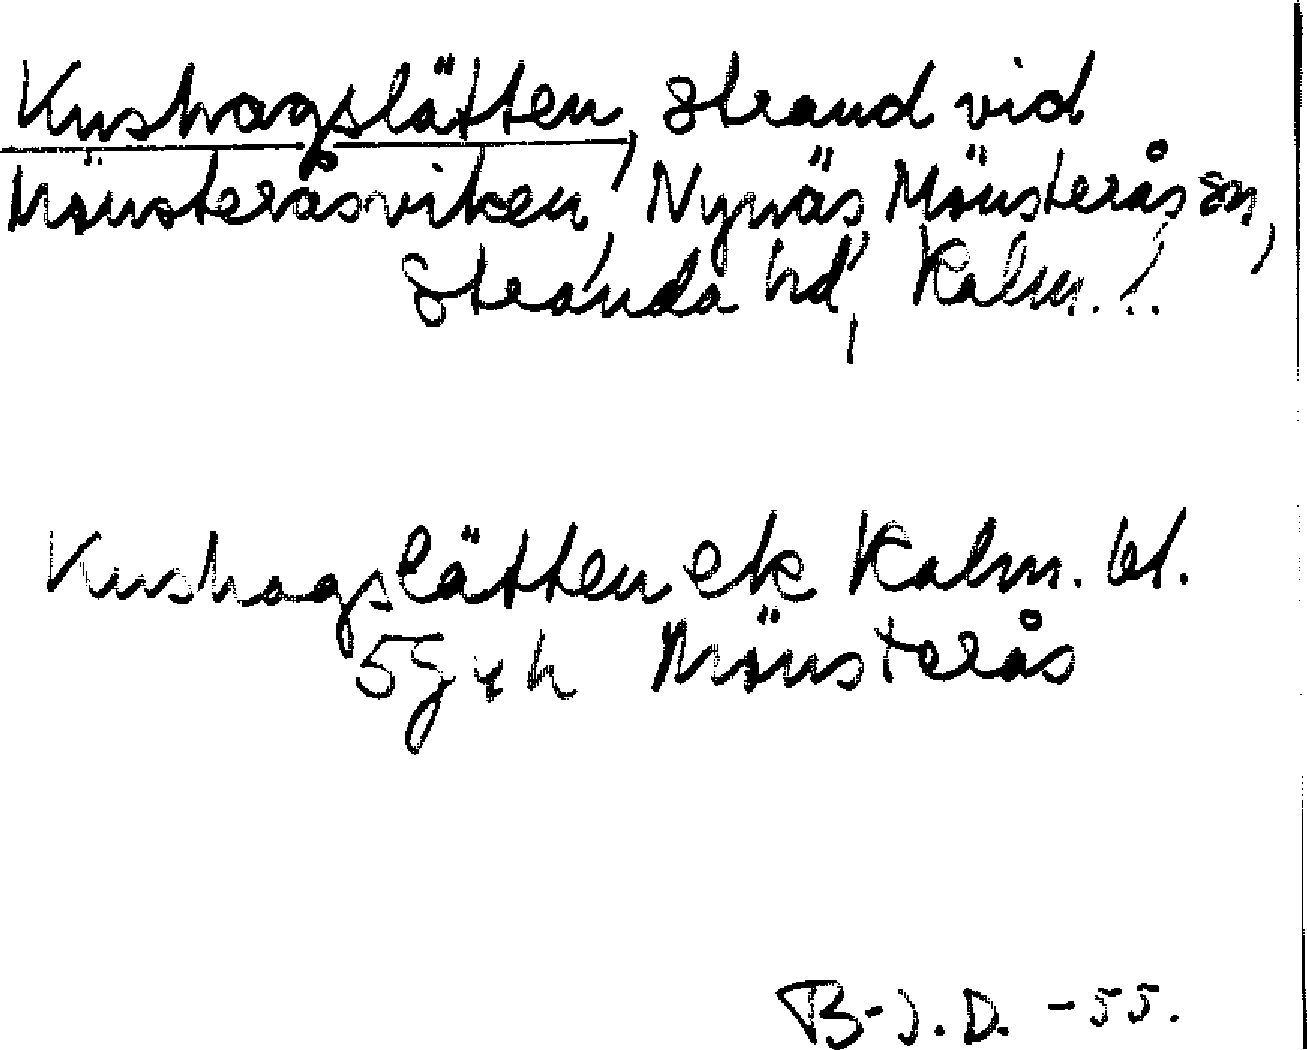 Knshagslätten, strand vid
Mönsteråsviken, Nynäs, Mönsterås sn,
Stranda hd, Kalm. l.
Knshagslätten ek Kalm. bl.
5 g x h Mönsterås
B-J.D. -55.